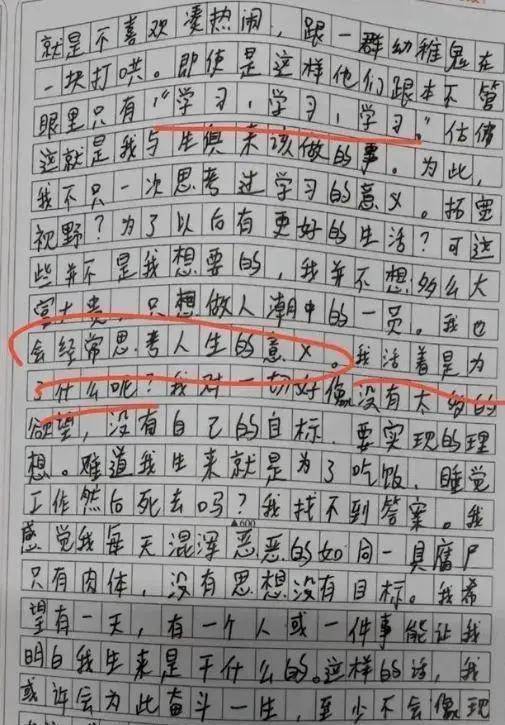 就是不喜欢凑热闹，跟一群幼稚鬼在
一块打哄。即使是这样他们跟本不管
眼里只有“学习，学习，学习。”仿佛
这就是我与生俱来该做的事。为此，
我不只一次思考过学习的意义。拓宽
视野？为了以后有更好的生活？可这
些并不是我想要的，我并不想多么大
富大贵，只想做人潮中的一员。我也
会经常思考人生的意义。我活着是为
了什么呢？我对一切好像没有太多的
欲望，没有自己的目标，要实现的理
想。难道我生来就是为了吃饭、睡觉
工作然后死去吗？我找不到答案。我
▲600
感觉我每天混浑恶恶的如同一具腐尸
只有肉体，没有思想没有目标。我希
望有一天，有一个人或一件事能让我
明白我生来是干什么的。这样的话，我
或许会为此奋斗一生，至少不会像现